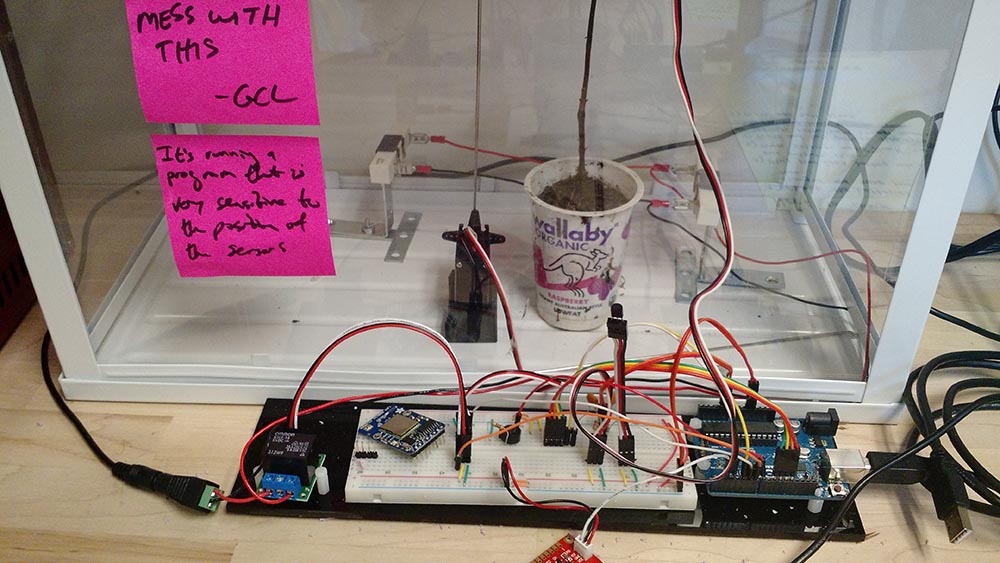 MESS WITH
THIS
-GCL
It's running a
program that is
very sensitive to
the position of
the sensors
wallaby
ORGANIC
RASPBERRY
LOWFAT